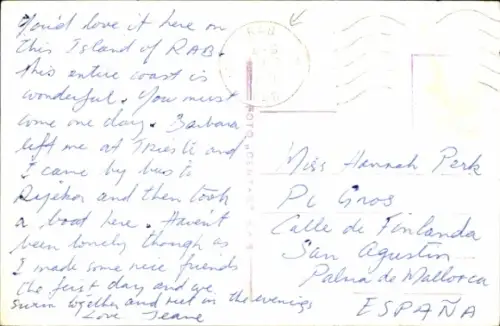 You'd love it here on
this Island of RAB.
this entire coast is
wonderful. You must
come one day. Barbara
left me at Trieste and
I came by bus to
Rijeka and then took
a boat here. Haven't
been lonely though as
I made some nice friends
the first day and we
swim together and eat in the evenings
Love Jeane
RAB
Miss Hannah Perk
Pi Gros
Calle de Finlanda
San Agustin
Palma de Mallorca
ESPAÑA